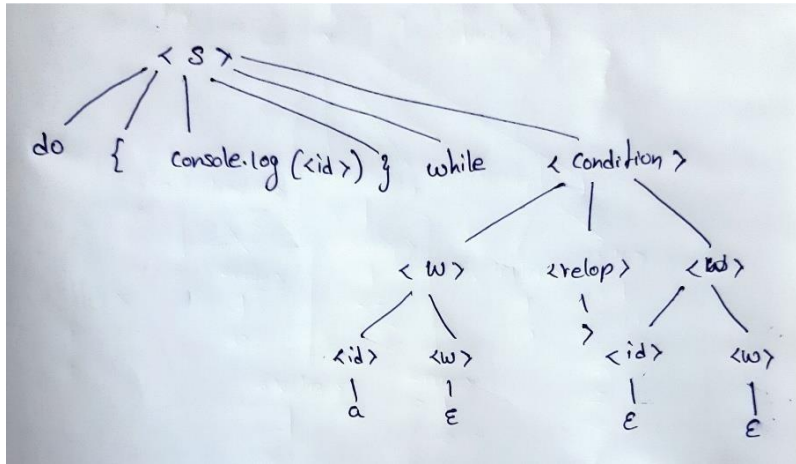 < S >
do { console.log (<id>) } while < condition >
< w > <relop> < >
> <id> <w> <id> <w>
a ε ε ε